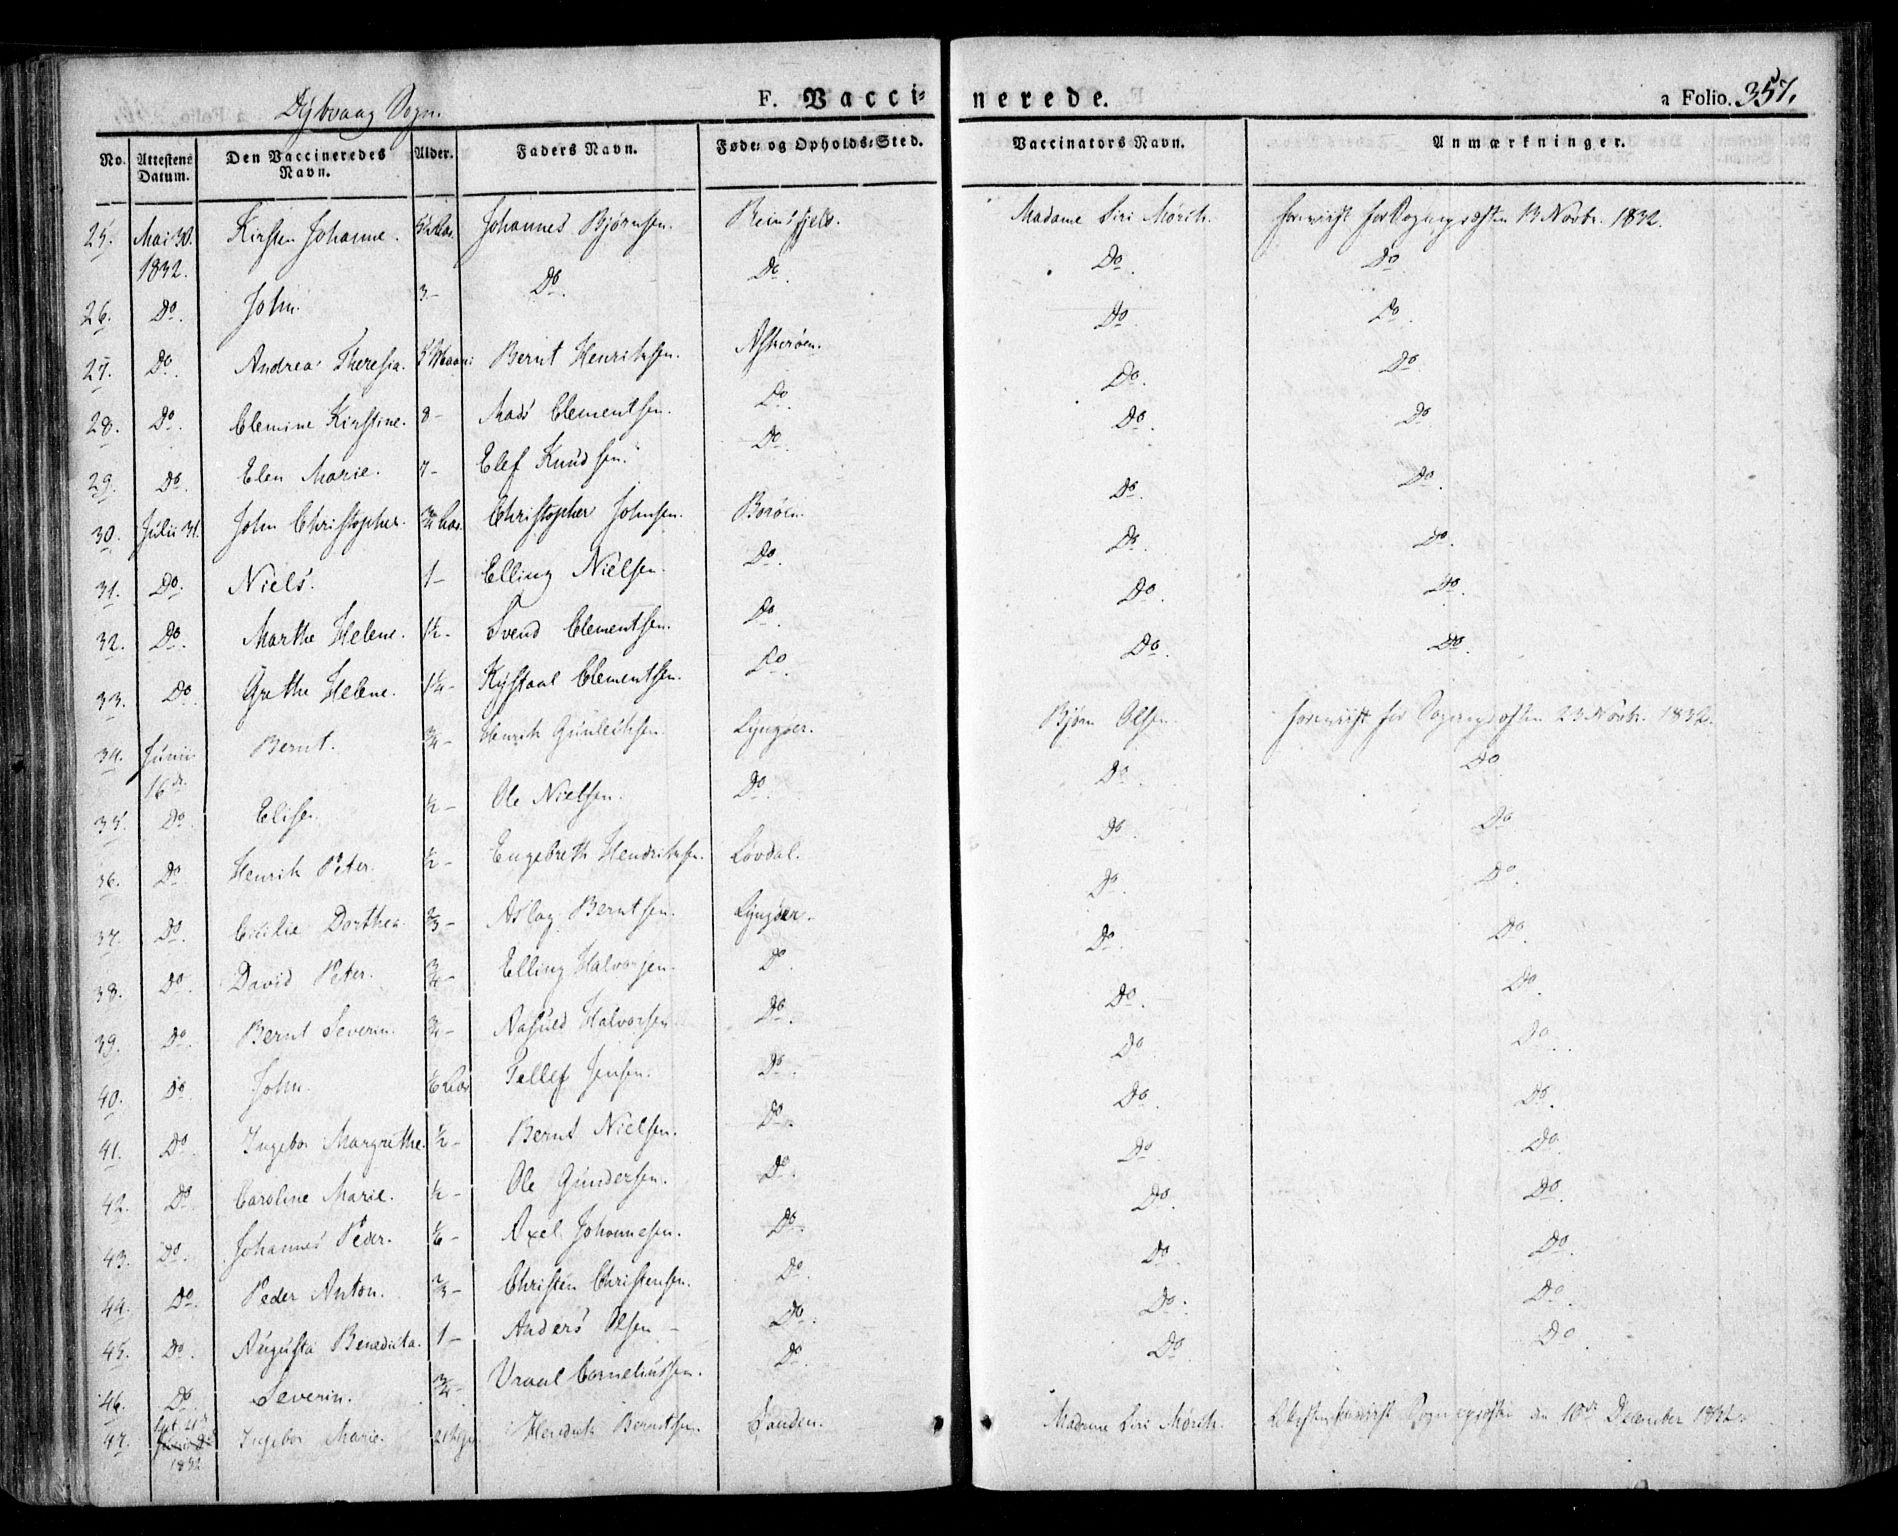 Dÿbvaag Sogn.
F. Vacci-
nerede.
a Folio. 357.
No. Attestens Datum. Den Vaccineredes Navn. Alder. Faders Navn. Føde- og Opholds-Sted. Vaccinators Navn. Anmærkninger.
25. Mai 30. 1832. Kirsten Johanne. Johannes Bjørnsen. Madame Siri Mørch. 13 Novbr. 1832.
26. Do. John. 3 - Do. Do. Do. Do.
27. Do. Andrea Theresia. Bernt Henrichsen. Askerøen. Do. Do.
28. Do. Clemine Kirstine. 8 - Mads Clementsen. Do. Do. Do.
29. Do. Elen Marie. 7 - Elef Knudsen. Do. Do. Do.
30. Julii 31. John Christopher. Christopher Johnsen. Borøen. Do. Do.
31. Do. Niels. 1 - Elling Nielsen. Do. Do. Do.
32. Do. Marthe Helene. 1½ - Svend Clementsen. Do. Do. Do.
33. Do. Grethe Helene. 1¼ - Clementsen. Do. Do. Do.
34. Junii 16de. Bernt. ¾ - Henrik Gunleiksen. Lyngøer. Bjørn Olsen. 23 Novbr. 1832.
35. Do. Elise. ½ - Ole Nielsen. Do. Do. Do.
36. Do. Henrik Peter. ½ - Engebreth Hendriksen. Lovdal. Do. Do.
37. Do. Cicilie Dorthea. ⅔ - Aslag Berntsen. Lyngøer. Do. Do.
38. Do. David Peter. ¾ - Elling Halvorsen. Do. Do. Do.
39. Do. Bernt Severin. ¾ - Halvorsen. Do. Do. Do.
40. Do. John. Tellef Jensen. Do. Do. Do.
41. Do. Ingebor Margrethe. ½ - Bernt Nielsen. Do. Do. Do.
42. Do. Caroline Marie. ½ - Ole Gundersen. Do. Do. Do.
43. Do. Johannes Peder. ⅙ - Axel Johannesen. Do. Do. Do.
44. Do. Peder Anton. ⅔ - Christen Christensen. Do. Do. Do.
45. Do. Augusta Benedicta. 1 - Anders Olsen - Do. Do. Do.
46. Do. Severin. ¾ - Vraal Corneliussen. Do. Do. Do.
47. 1832 Ingebor Marie. Hendrik Berntsen. Sanden. Madame Siri Mørch. 10de December 1832.